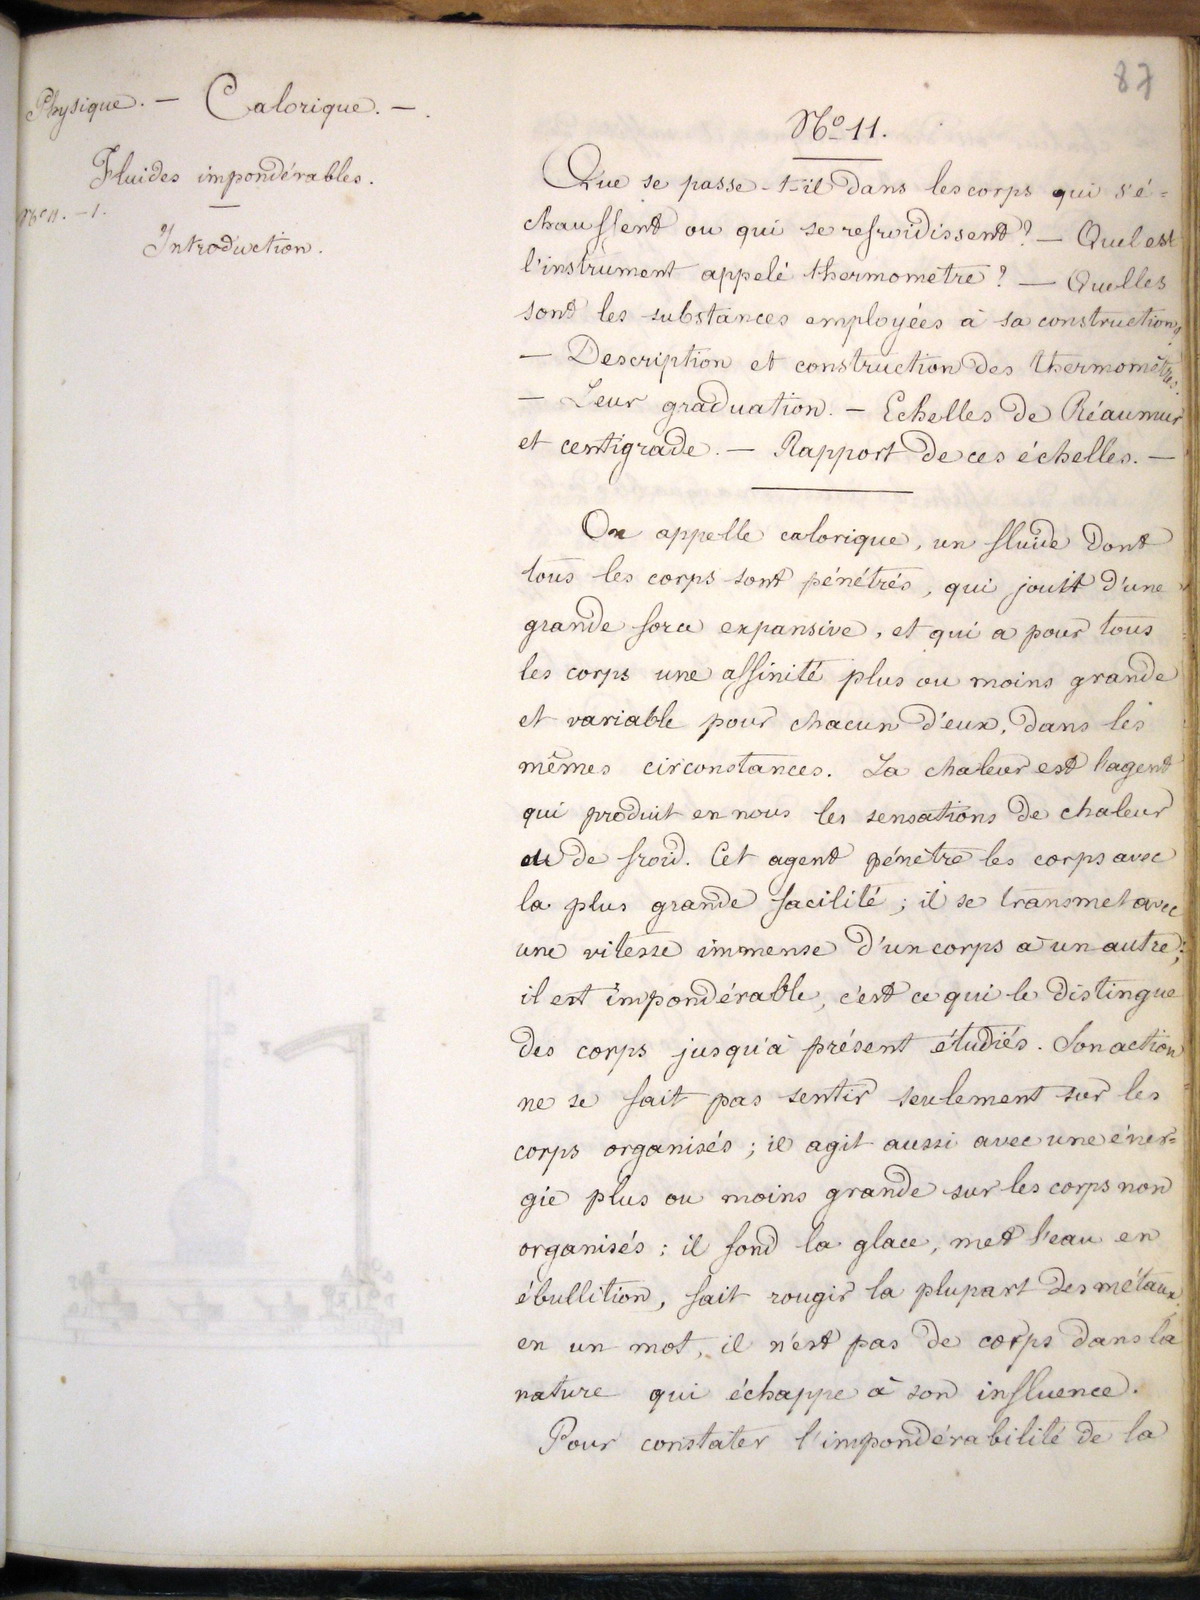 87
Physique. — Calorique. —.
Fluides impondérables.
Nº 11. — 1.
Introduction.
Nº 11.
Que se passe-t-il dans les corps qui s'é=
chauffent ou qui se refroidissent ? — Quel est
l'instrument appelé thermomètre ? — Quelles
sont les substances employées à sa construction?
— Description et construction des thermomètres.
— Leur graduation. — Echelles de Réaumur
et centigrade. — Rapport de ces échelles. —
On appelle calorique, un fluide dont
tous les corps sont pénétrés, qui jouit d'une
grande force expansive, et qui a pour tous
les corps une affinité plus ou moins grande
et variable pour chacun d'eux, dans les
mêmes circonstances. La chaleur est l'agent
qui produit en nous les sensations de chaleur
ou de froid. Cet agent pénètre les corps avec
la plus grande facilité ; il se transmet avec
une vitesse immense d'un corps à un autre ;
il est impondérable, c'est ce qui le distingue
des corps jusqu'à présent étudiés. Son action
ne se fait pas sentir seulement sur les
corps organisés ; il agit aussi avec une éner=
gie plus ou moins grande sur les corps non
organisés : il fond la glace, met l'eau en
ébullition, fait rougir la plupart des métaux,
en un mot, il n'est pas de corps dans la
nature qui échappe à son influence.
Pour constater l'impondérabilité de la